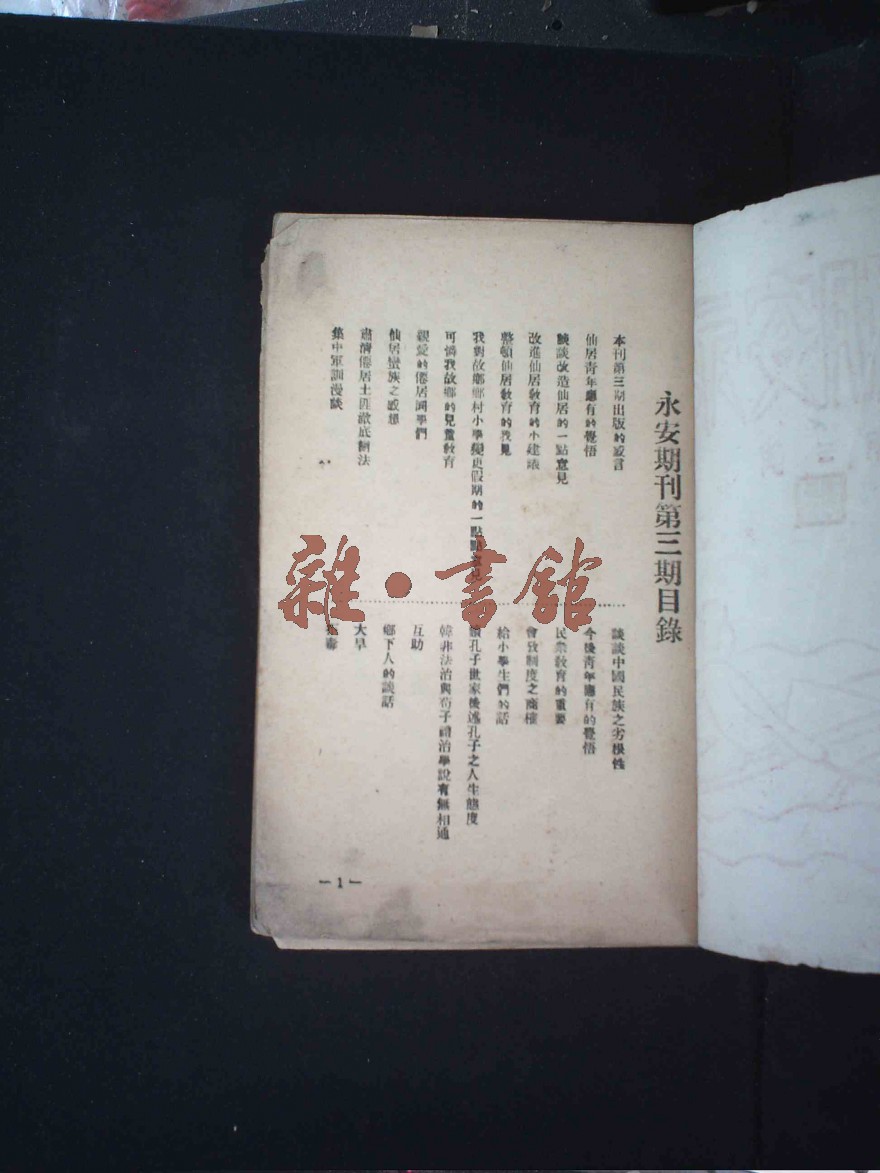 永安期刊第三期目錄
本刊第三期出版的感言
仙居青年應有的覺悟
談談改造仙居的一點意見
改進仙居教育的小建議
整頓仙居教育的我見
我對故鄉鄉村小學變更假期的一點點意見
可憐我故鄉的兒童教育
親愛的僊居同學們
仙居蠻族之感想
肅清僊居土匪澈底辦法
集中軍訓漫談
談談中國民族之劣根性
今後青年應有的覺悟
民衆教育的重要
會攷制度之商榷
給小學生們的話
讀孔子世家後述孔子之人生態度
韓非法治與荀子禮治學說有無相通
互助
鄉下人的談話
大旱
毒
—1—
雜·書館